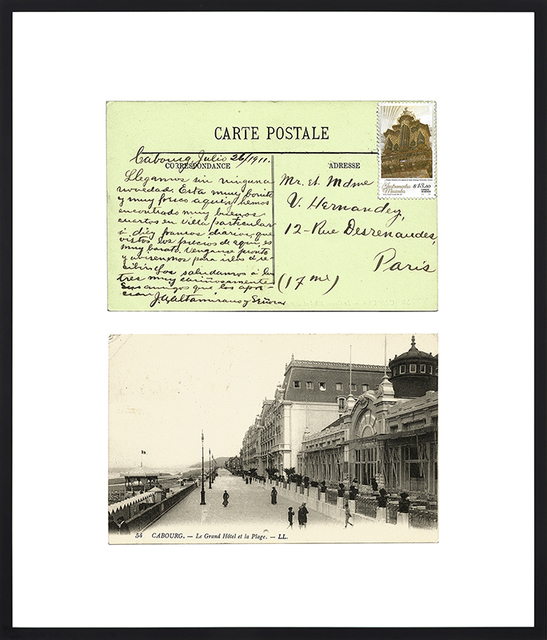 CARTE POSTALE
CORRESPONDANCE
ADRESSE
Cabourg, Julio 26/1911.
Llegamos sin ninguna
novedad. Esta muy bonito
y muy fresco aqui, hemos
encontrado muy buenos
cuartos en villa particular
á diez francos diarios, que
vistos los precios de aqui, es
muy barato. Vengan pronto
y avisennos para irlos á re-
cibir. Los saludamos á los
tres muy cariñosamente
Sus amigos que los apre-
cian J. y Altamirano y Señora
Mr. et Mdme
V. Hernandez,
12-Rue Desrenaudes,
Paris
(17 me)
54 CABOURG. — Le Grand Hôtel et la Plage. — LL.